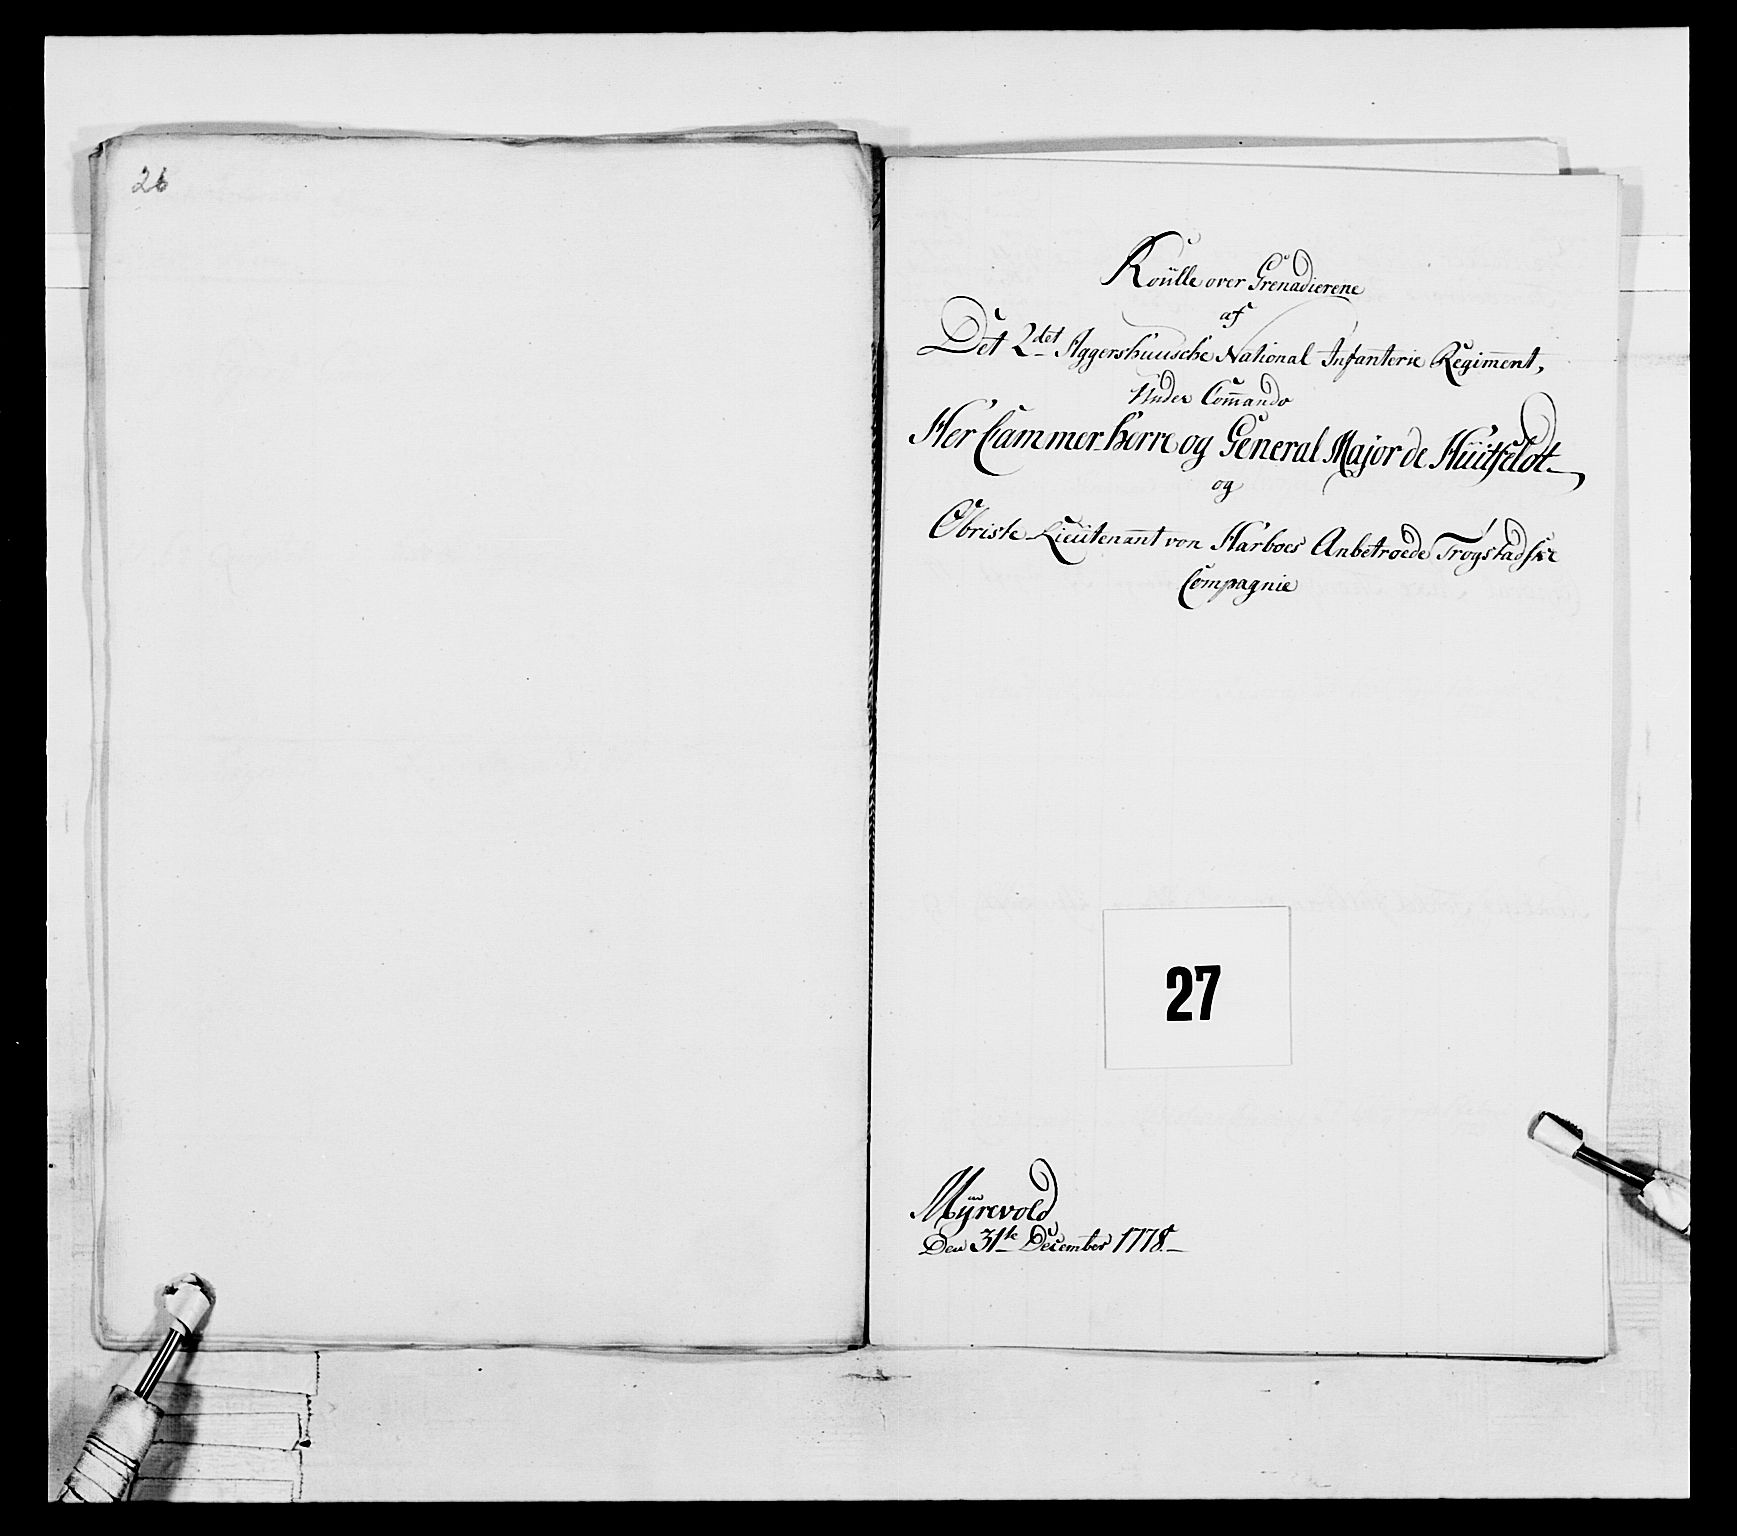 26
Roülle over Grenadierene
af
Det 2det Aggershuusche National Infanterie Regiment,
Under Com̄ando
Her Cammer-herre og General Major de Hüitfeldt
og
Obriste Lieütenant von Harboes Anbetroede Trøgstadske
Compagnie
27
Mÿrevold
Den 31te December 1778.